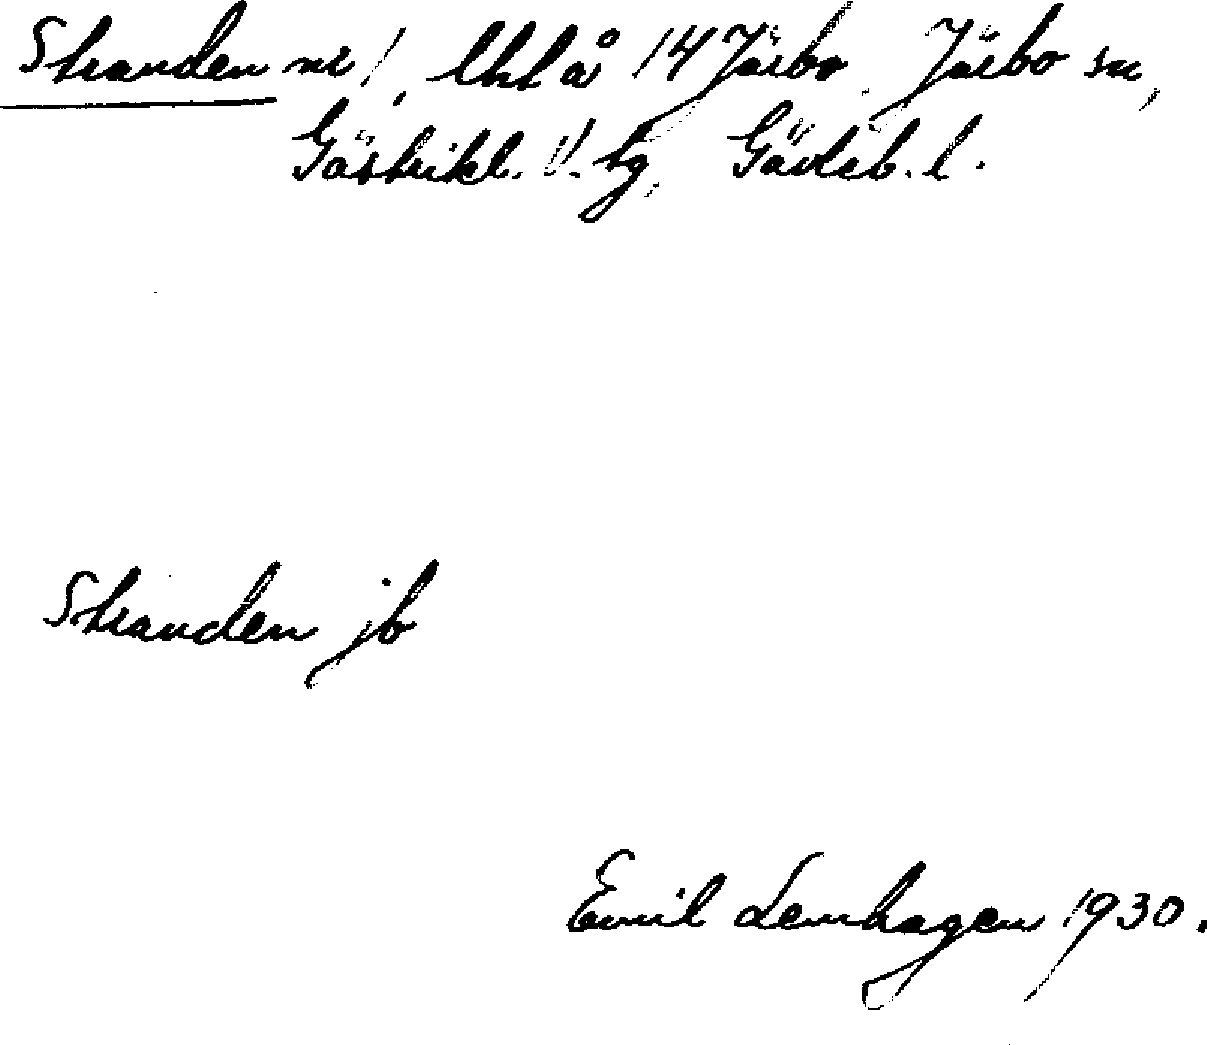 Stranden nr 1, Uhl å 14 Järbo, Järbo sn,
Gästrikl. V. tg, Gävleb. l.
Stranden jb
Emil Lemhagen 1930.